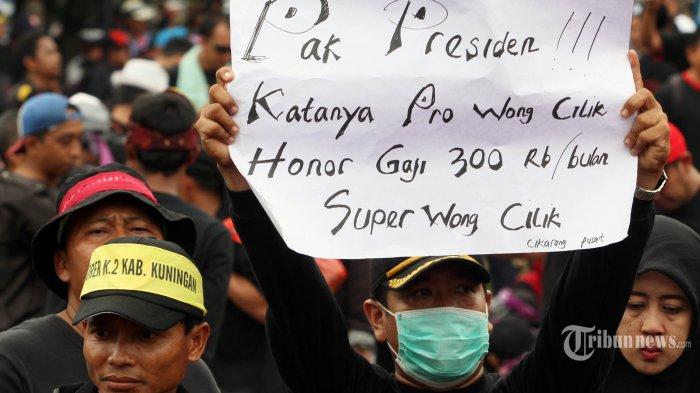 Pak Presiden !!!
Katanya Pro Wong Cilik
Honor Gaji 300 Rb/bulan
Super Wong Cilik
Cikarang pusat
K.2 KAB. KUNINGAN
Tribunnews.com